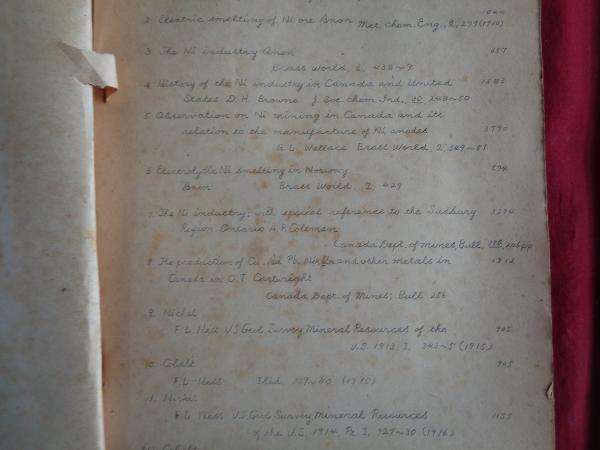 2 Electric smelting of Ni ore Anon Met. Chem. Eng., 8, 277 (1910)
3 The Ni industry Anon 657
Brass World, 2, 438~9
4 History of the Ni industry in Canada and United 1583
States D. H. Browne J. Soc. chem. Ind., 248~50
5 Observation on Ni mining in Canada and its
relation to the manufacture of Ni anodes 3790
G. L. Wallace Brass World, 2, 349~51
6 Electrolytic Ni smelting in Norway 594
Anon Brass World, 7, 429
7 The Ni industry; with special reference to the Sudbury 3294
Region, Ontario A. P. Coleman
Canada Dept. of mines, Bull.
8 The production of Cu. Pb. Ni. and other metals in 1912
Canada in C. T. Cartwright
Canada Dept. of Mines; Bull 256
9. Nickel
F. L. Hess U.S. Geol Survey, Mineral Resources of the 945
U.S. 1913, I, 343~5 (1915)
10 Cobalt 945
F. L. Hess Ibid. 339~40 (1915)
11. Nickel
F. L. Hess U.S. Geol Survey, Mineral Resources 1155
of the U.S. 1914 Pt. I, 927~30 (1916)
Cobalt